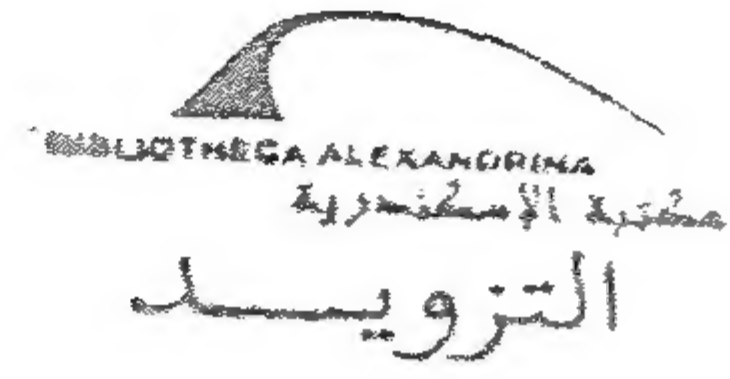 BIBLIOTHECA ALEXANDRINA
مكتبة الإسكندرية
التزويـــد